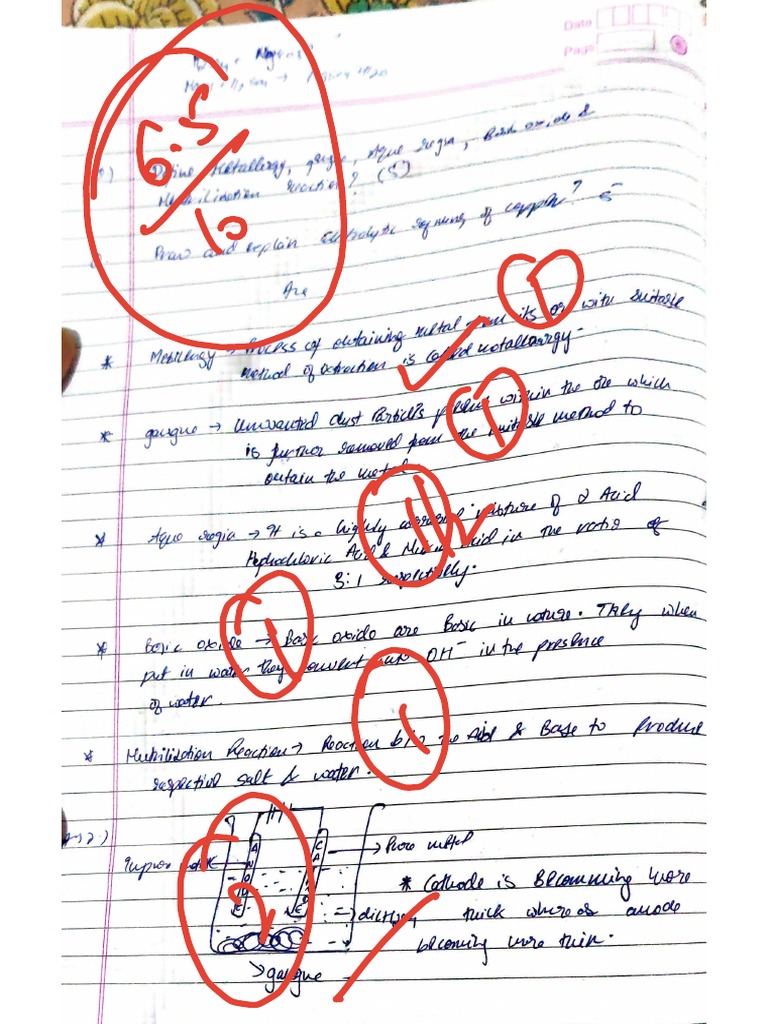 Date
Page
6.5
10
Define Metallergy, gangue, Aqua regia, Basic oxide &
Neutrilization reaction? (5)
Draw and explain Electrolytic refining of copper? 5
Ans
* Metallergy → Process of obtaining metal from its ore with suitable
method of extraction is called metallargy.
1
* gangue → Unwanted dust Particles present within the ore which
is further removed from the suitable method to
obtain the metal
1
* Aqua regia → It is a highly mixture of 2 Acid
Hydrochloric Acid & Nitric Acid in the ratio of
3:1 respectifully.
* Basic oxide → Basic oxide are Basic in nature. They when
put in water they convert into OH⁻ in the presence
of water.
1
* Nutrilization Reaction → Reaction b/w the Acid & Base to Produce
respective salt & water.
1
2.)
ANODE
CATHODE
→ Pure metal
* Cathode is becomming more
thick where as anode
becoming more thin.
→ gangue
2